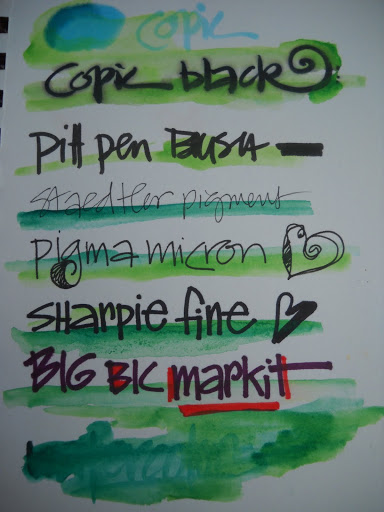 copic
copic black
pitt pen BRUSH
staedtler pigment
pigma micron
sharpie fine
BIG BIC markit